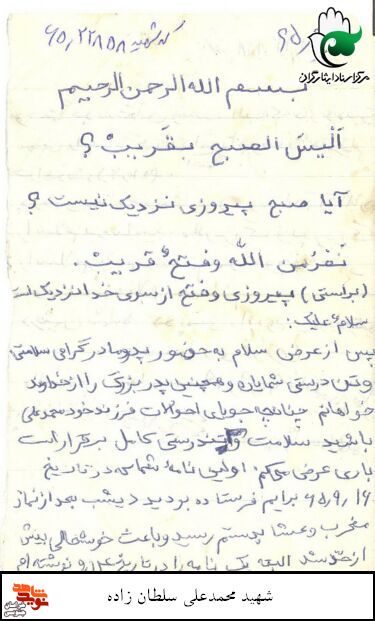 کد شهید ۶۵۰۲۲۸۵۸
۶۵
مرکز اسناد ایثارگران
بسم الله الرحمن الرحیم
اَلَیسَ الصبح بقَریبْ؟
آیا صبح پیروزی نزدیک نیست؟
نَصْرُمن اللّه وفتحٌ قریبْ.
(براستی) پیروزی وفتح ازسوی خدا نزدیک است
سلامٌ علیک:
پس از عرض سلام به حضور پدرومادر گرامی سلامتی
وتن درستی شمایان وهمچنین پدر بزرگ را از خداوند
خواهانم چنانچه جویای احوالات فرزند خود محمدعلی
باشید سلامت وتندرستی کامل برقرار است
باری عرض میکنم اولین نامهٔ شما که در تاریخ
۶۵,۹,۱۶ برایم فرستاده بودید دیشب بعد از نماز
مغرب وعشا بدستم رسید وباعث خوشحالی بیش
ازحد شد البته یک نامه را در تاریخ نوشته ام
شهید محمدعلی سلطان زاده
نوید شاهد
خراسان رضوی